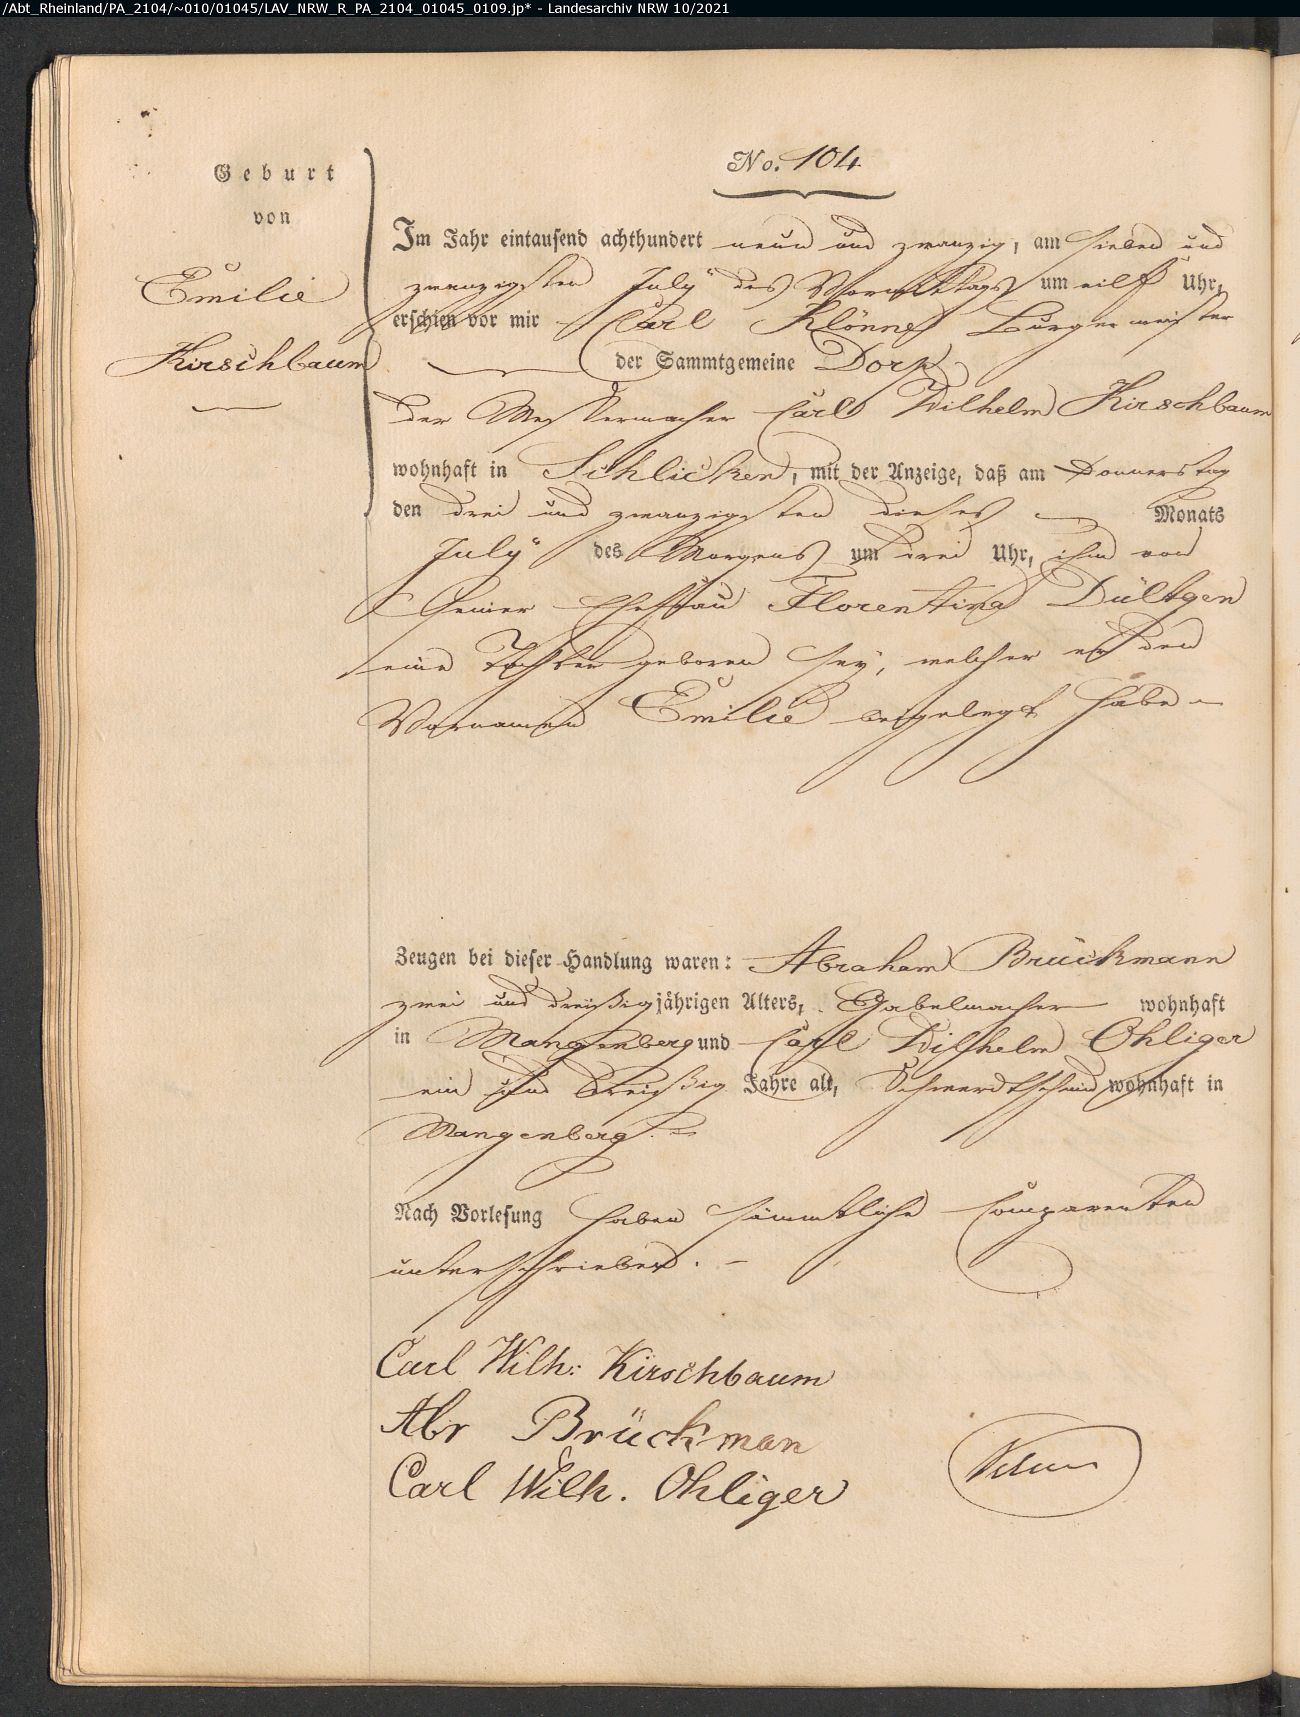 /Abt_Rheinland/PA_2104/~010/01045/LAV_NRW_R_PA_2104_01045_0109.jp* - Landesarchiv NRW 10/2021
No. 104
Geburt
von
Emilie
Kirschbaum
Im Jahr eintausend achthundert neun und zwanzig, am sieben und
zwanzigsten July des Vormittags um eilf Uhr,
erschien vor mir Carl Klönne Burgermeister
der Sammtgemeine Dorp
der Messermacher Carl Wilhelm Kirschbaum
wohnhaft in Schlicken, mit der Anzeige, daß am Donnerstag
den drei und zwanzigsten dieses Monats
July des Morgens um drei Uhr, ihm von
seiner Ehefrau Florentina Dültgen
eine Tochter geboren sey, welcher er den
Vornamen Emilie beigelegt habe –
Zeugen bei dieser Handlung waren: Abraham Brückmann
zwei und dreißig jährigen Alters, Gabelmacher wohnhaft
in Mangenberg und Carl Wilhelm Ohliger
ein und dreißig Jahre alt, Schwerdtschmid wohnhaft in
Mangenberg. =
Nach Vorlesung haben sämmtliche Comparenten
unterschrieben. –
Carl Wilh: Kirschbaum
Abr Brückman
Carl Wilh. Ohliger